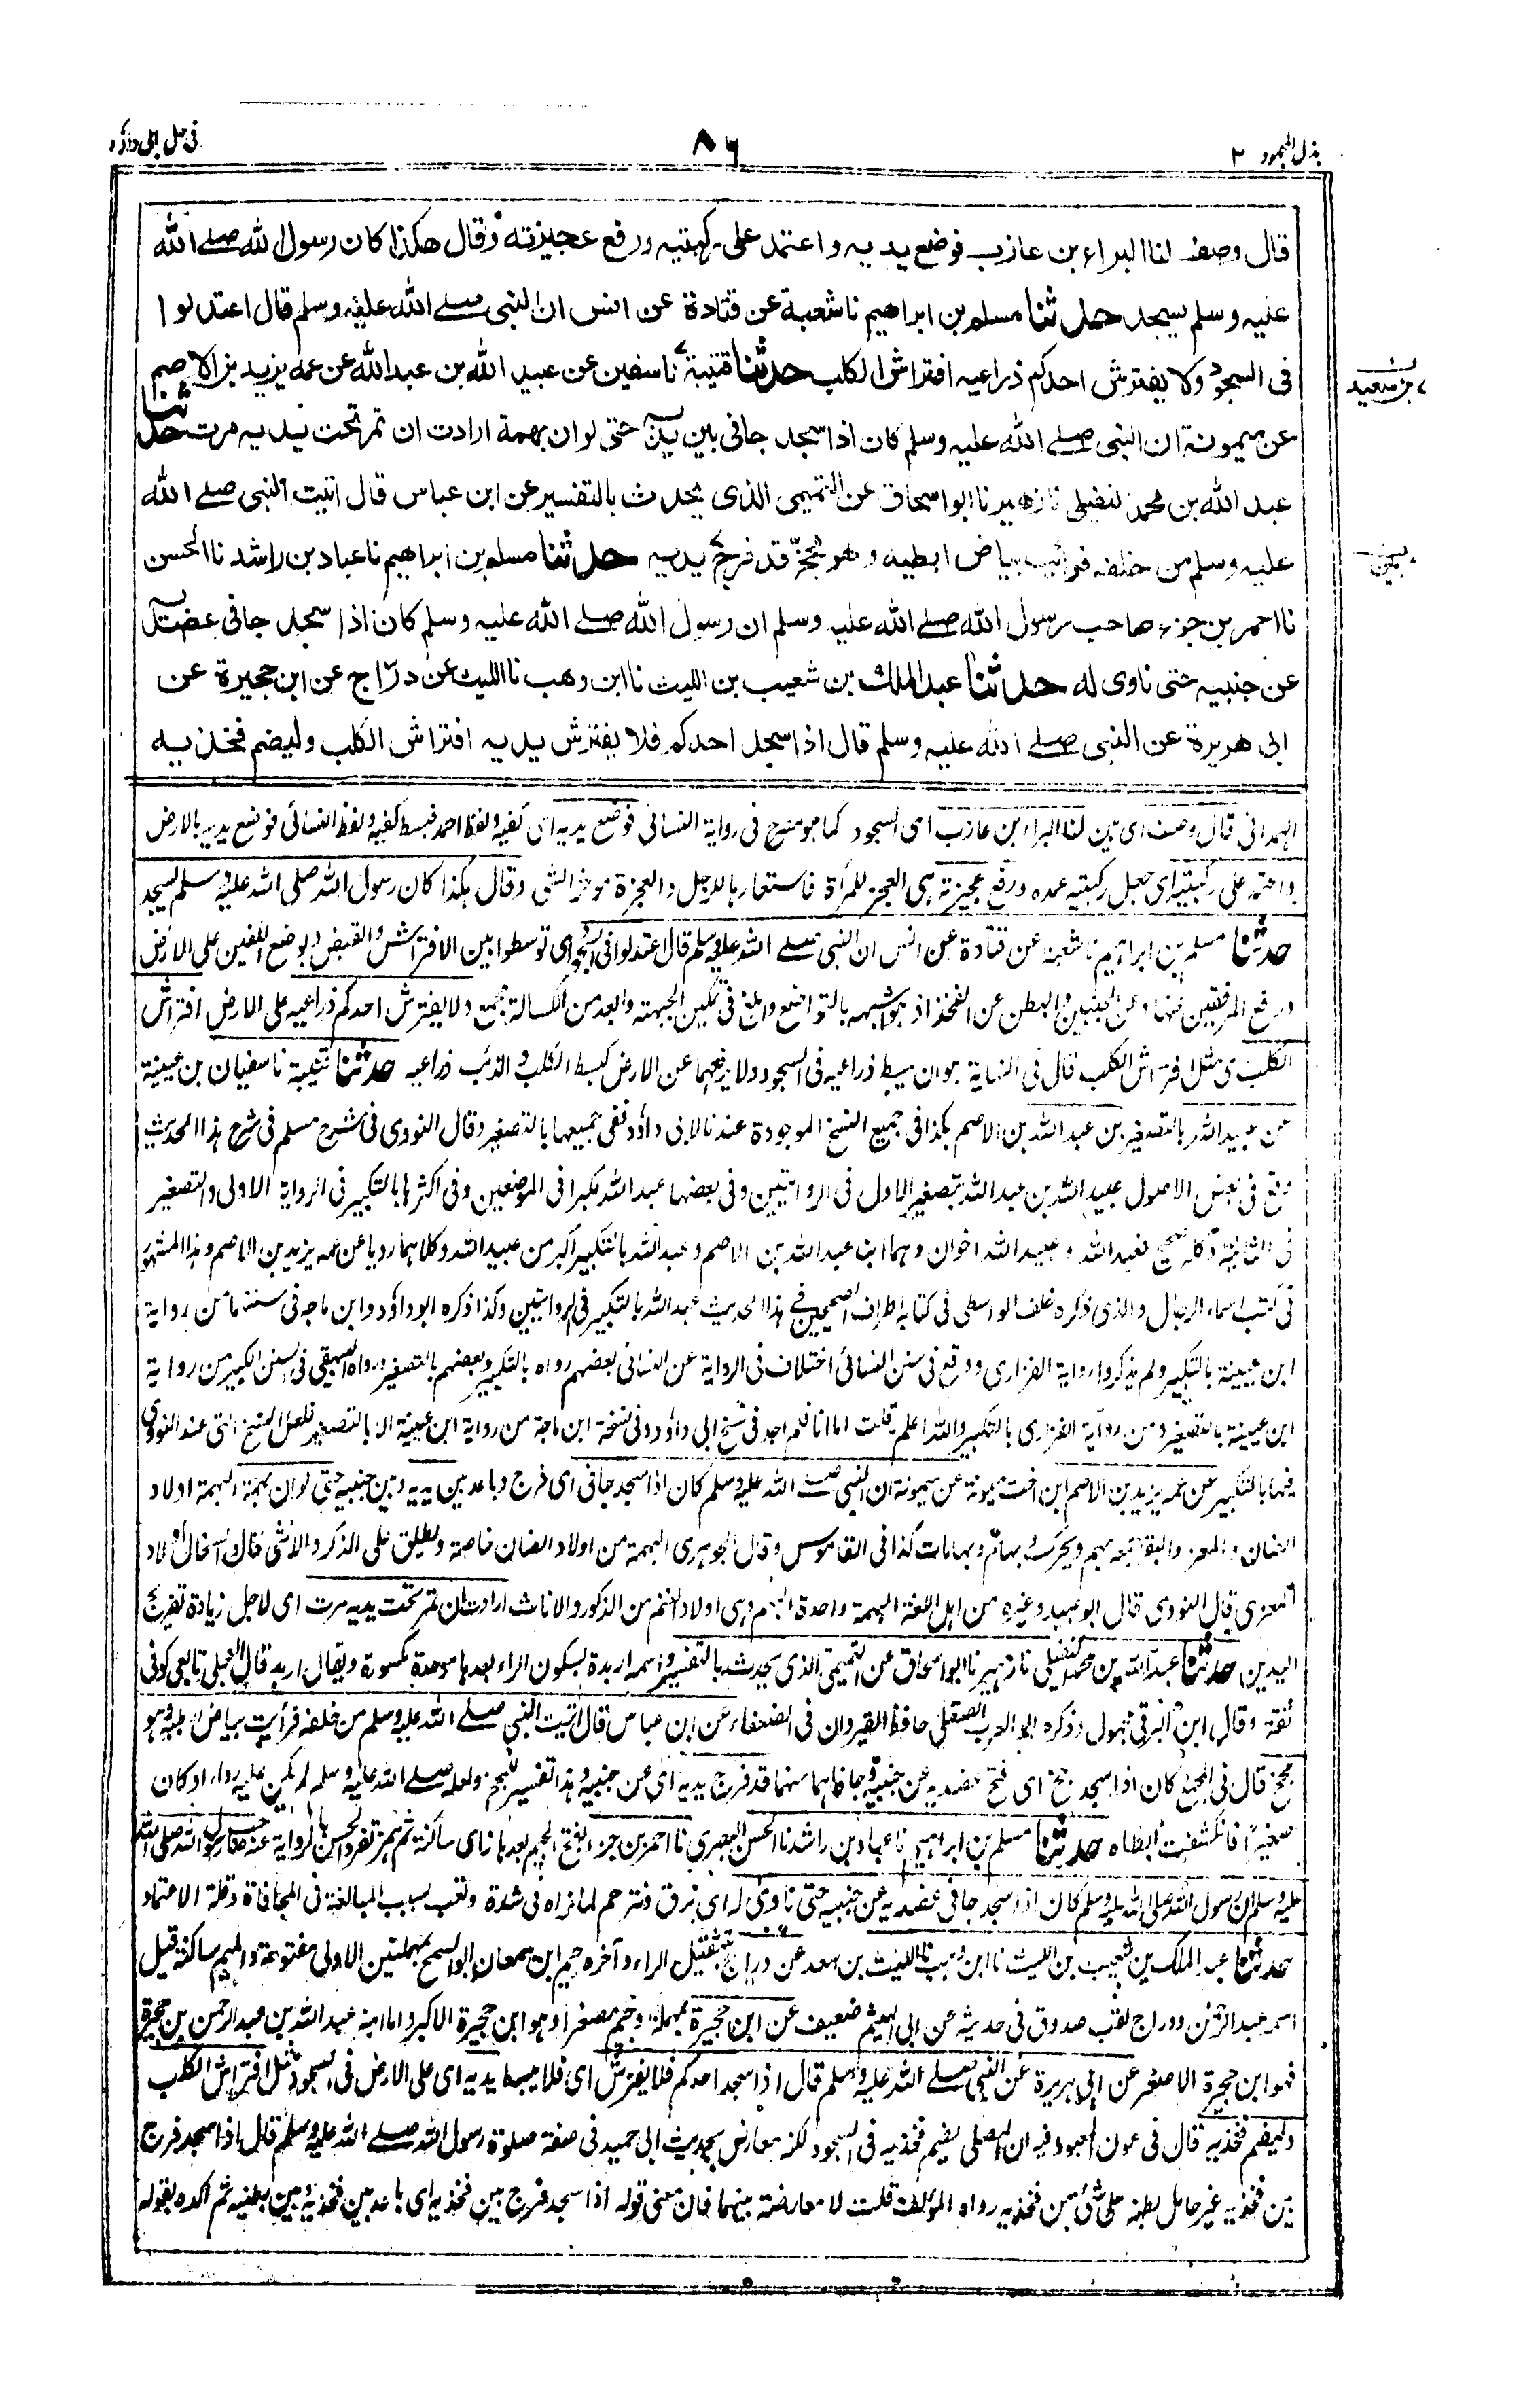 بذل المجهود ٢
٨٦
في حل ابي داؤد
قال وصف لنا البراء بن عازب فوضع يديه واعتمد على ركبتيه ورفع عجيزته وقال هكذا كان رسول الله صلے الله
عليه وسلم يسجد حدثنا مسلم بن ابراهيم نا شعبة عن قتادة عن انس ان النبى صلے الله عليه وسلم قال اعتدلوا
فى السجود ولا يفترش احدكم ذراعيه افتراش الكلب حدثنا قتيبة نا سفين عن عبيد الله بن عبد الله عن عمه يزيد بن الاصم
بن سعيد
عن ميمونة ان النبى صلے الله عليه وسلم كان اذا سجد جافى بين يديه حتى لو ان بهمة ارادت ان تمر تحت يديه مرت حدثنا
عبد الله بن محمد النفيلى نا زهير نا ابو اسحاق عن التميمى الذى يحدث بالتفسير عن ابن عباس قال اتيت النبى صلے الله
عليه وسلم من خلفه فرأيت بياض ابطيه وهو مجخّ قد فرج يديه حدثنا مسلم بن ابراهيم نا عباد بن راشد نا الحسن
نا احمر بن جزء صاحب رسول الله صلے الله عليه وسلم ان رسول الله صلے الله عليه وسلم كان اذا سجد جافى عضديه
عن جنبيه حتى ناوى له حدثنا عبد الملك بن شعيب بن الليث نا ابن وهب نا الليث عن درّاج عن ابن حجيرة عن
ابى هريرة عن النبى صلے الله عليه وسلم قال اذا سجد احدكم فلا يفترش يديه افتراش الكلب وليضم فخذيه
الهمدانى قال وصف اى بين لنا البراء بن عازب اى السجود كما هو مصرح فى رواية النسائى فوضع يديه اى كفيه ولفظ احمد فبسط كفيه ولفظ النسائى فوضع يديه بالارض
واعتمد على ركبتيه اى جعل ركبتيه عمده ورفع عجيزته هى العجز للمرأة فاستعارها للرجل والعجزة موخر الشئ وقال هكذا كان رسول الله صلى الله عليه وسلم يسجد
حدثنا مسلم بن ابراهيم نا شعبة عن قتادة عن انس ان النبى صلے الله عليه وسلم قال اعتدلوا فى السجود اى توسطوا بين الافتراش والقبض وبوضع الكفين على الارض
ورفع المرفقين عنها وعن الجنبين والبطن عن الفخذ اذ هو اشبه بالتواضع وابلغ فى تمكين الجبهة وابعد من الكسالة مجمع ولا يفترش احدكم ذراعيه على الارض افتراش
الكلب اى مثل افتراش الكلب قال فى النهاية هو ان يبسط ذراعيه فى السجود ولا يرفعهما عن الارض كبسط الكلب والذئب ذراعيه حدثنا قتيبة نا سفيان بن عيينة
عن عبيد الله بالتصغير بن عبد الله بن الاصم هكذا فى جميع النسخ الموجودة عندنا لابى داؤد ففى جميعها بالتصغير وقال النووى فى شرح مسلم فى شرح هذا الحديث
وقع فى بعض الاصول عبيد الله بن عبد الله بتصغير الاول فى الروايتين وفى بعضها عبد الله مكبرا فى الموضعين وفى اكثرها بالتكبير فى الرواية الاولى والتصغير
فى الثانية وكله صحيح فعبد الله وعبيد الله اخوان وهما ابنا عبد الله بن الاصم وعبد الله بالتكبير اكبر من عبيد الله وكلاهما رويا عن عمه يزيد بن الاصم وهذا المشهور
فى كتب اسماء الرجال والذى ذكره خلف الواسطى فى كتابه اطراف الصحيحين فى هذا الحديث عبد الله بالتكبير فى الروايتين وكذا ذكره ابو داؤد وابن ماجه فى سننهما من رواية
ابن عيينة بالتكبير ولم يذكروا رواية الفزارى ووقع فى سنن النسائى اختلاف فى الرواية عن النسائى بعضهم رواه بالتكبير وبعضهم بالتصغير ورواه البيهقى فى السنن الكبير من رواية
ابن عيينة بالتصغير ومن رواية الفزارى بالتكبير والله اعلم قلت اما انا فلم اجد فى نسخ ابى داؤد وفى نسخة ابن ماجة من رواية ابن عيينة الا بالتصغير فلعل النسخ التى عند النووى
فيها بالتكبير عن عمه يزيد بن الاصم ابن اخت ميمونة عن ميمونة ان النبى صلے الله عليه وسلم كان اذا سجد جافى اى فرج وباعد بين يديه وبين جنبيه حتى لو ان بهمة البهمة اولاد
الضان والمعز والبقر جمعه بهم ويحرك وبهام وبهامات كذا فى القاموس وقال الجوهرى البهمة من اولاد الضان خاصة ويطلق على الذكر والانثى قال والسخال اولاد
المعزى قال النووى قال ابو عبيد وغيره من اهل اللغة البهمة واحدة البهم وهى اولاد الغنم من الذكور والاناث ارادت ان تمر تحت يديه مرت اى لاجل زيادة تفريج
اليدين حدثنا عبد الله بن محمد النفيلى نا زهير نا ابو اسحاق عن التميمى الذى يحدث بالتفسير واسمه اربدة بسكون الراء بعدها موحدة مكسورة ويقال اربد قال العجلى تابعى كوفى
ثقة وقال ابن البرقى مجهول وذكره ابو العرب الصقلى حافظ القيروان فى الضعفاء عن ابن عباس قال اتيت النبى صلے الله عليه وسلم من خلفه فرأيت بياض ابطيه وهو
مجخ قال فى المجمع كان اذا سجد جخ اى فتح عضديه عن جنبيه وجافاهما عنهما قد فرج يديه اى عن جنبيه وهذا تفسير للمجخ ولعله صلے الله عليه وسلم لم يكن عليه رداء او كان
صغيرا فانكشفت ابطاه حدثنا مسلم بن ابراهيم نا عباد بن راشد نا الحسن البصرى نا احمر بن جزء بفتح الجيم بعدها زاى ساكنة ثم همزة تفرد الحسن بالرواية عنه صاحب رسول الله صلى الله
عليه وسلم ان رسول الله صلى الله عليه وسلم كان اذا سجد جافى عضديه عن جنبيه حتى ناوى له اى نرق ونترحم لما نراه فى شدة وتعب بسبب المبالغة فى المجافاة وقلة الاعتماد
حدثنا عبد الملك بن شعيب بن الليث نا ابن وهب نا الليث بن سعد عن دراج بتثقيل الراء وآخره جيم ابن سمعان ابو السمح بمهملتين الاولى مفتوحة والميم ساكنة قيل
اسمه عبد الرحمن ودراج لقب صدوق فى حديثه عن ابى الهيثم ضعيف عن ابن حجيرة بمهملة وجيم مصغرا وهو ابن حجيرة الاكبر واما ابنه عبد الله بن عبد الرحمن بن حجيرة
فهو ابن حجيرة الاصغر عن ابى هريرة عن النبى صلے الله عليه وسلم قال اذا سجد احدكم فلا يفترش اى فلا يبسط يديه اى على الارض فى السجود مثل افتراش الكلب
وليضم فخذيه قال فى عون المعبود فيه ان المصلى يضم فخذيه فى السجود لكنه معارض بحديث ابى حميد فى صفة صلوة رسول الله صلے الله عليه وسلم قال اذا سجد فرج
بين فخذيه غير حامل بطنه على شئ من فخذيه رواه المؤلف قلت لا معارضة بينهما فان معنى قوله اذا سجد فرج بين فخذيه اى باعد بين فخذيه وبين بطنه ثم اكده بقوله